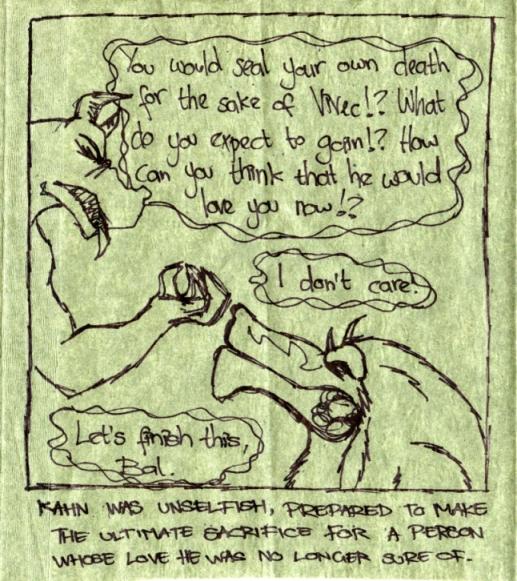 You would seal your own death
for the sake of Vivec!? What
do you expect to gain!? How
can you think that he would
love you now!?
I don't care!
Let's finish this,
Bal.
KAHN WAS UNSELFISH, PREPARED TO MAKE
THE ULTIMATE SACRIFICE FOR A PERSON
WHOSE LOVE HE WAS NO LONGER SURE OF.